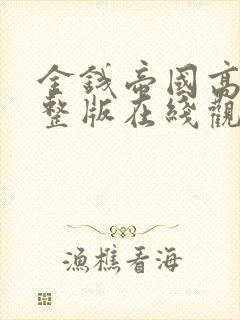 金錢帝國高
整版在綫觀
漁樵看海